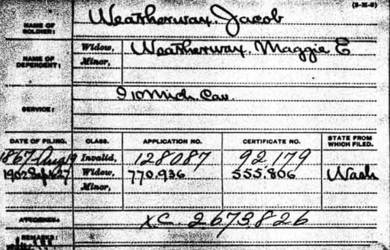 (3-216)
NAME OF SOLDIER: Weatherwax, Jacob
NAME OF DEPENDENT: Widow, Weatherwax, Maggie E
Minor,
SERVICE: I 10 Mich. Cav.
DATE OF FILING. CLASS. APPLICATION NO. CERTIFICATE NO. STATE FROM WHICH FILED.
1867 Aug 19 Invalid, 128087 92179
1902 Sept 27 Widow, 770,936 555,806 Wash
Minor,
ATTORNEY: XC 2673826
REMARKS: